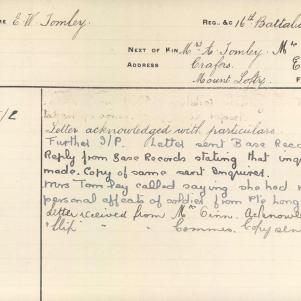 E. W. Tomley. REG. &C 16th Battalio
NEXT OF KIN Mrs A Tomley. Mr
ADDRESS Crafers. E
Mount Lofty. F
Letter acknowledged with particulars.
Further I/P. Letter sent Base Reco
Reply from Base Records stating that
made. Copy of same sent enquirer.
Mrs Tomley called saying she had
personal effects of soldier from Pte Long
Letter received from Mr Acknowle
" Slip " " Commrs. Copy sen